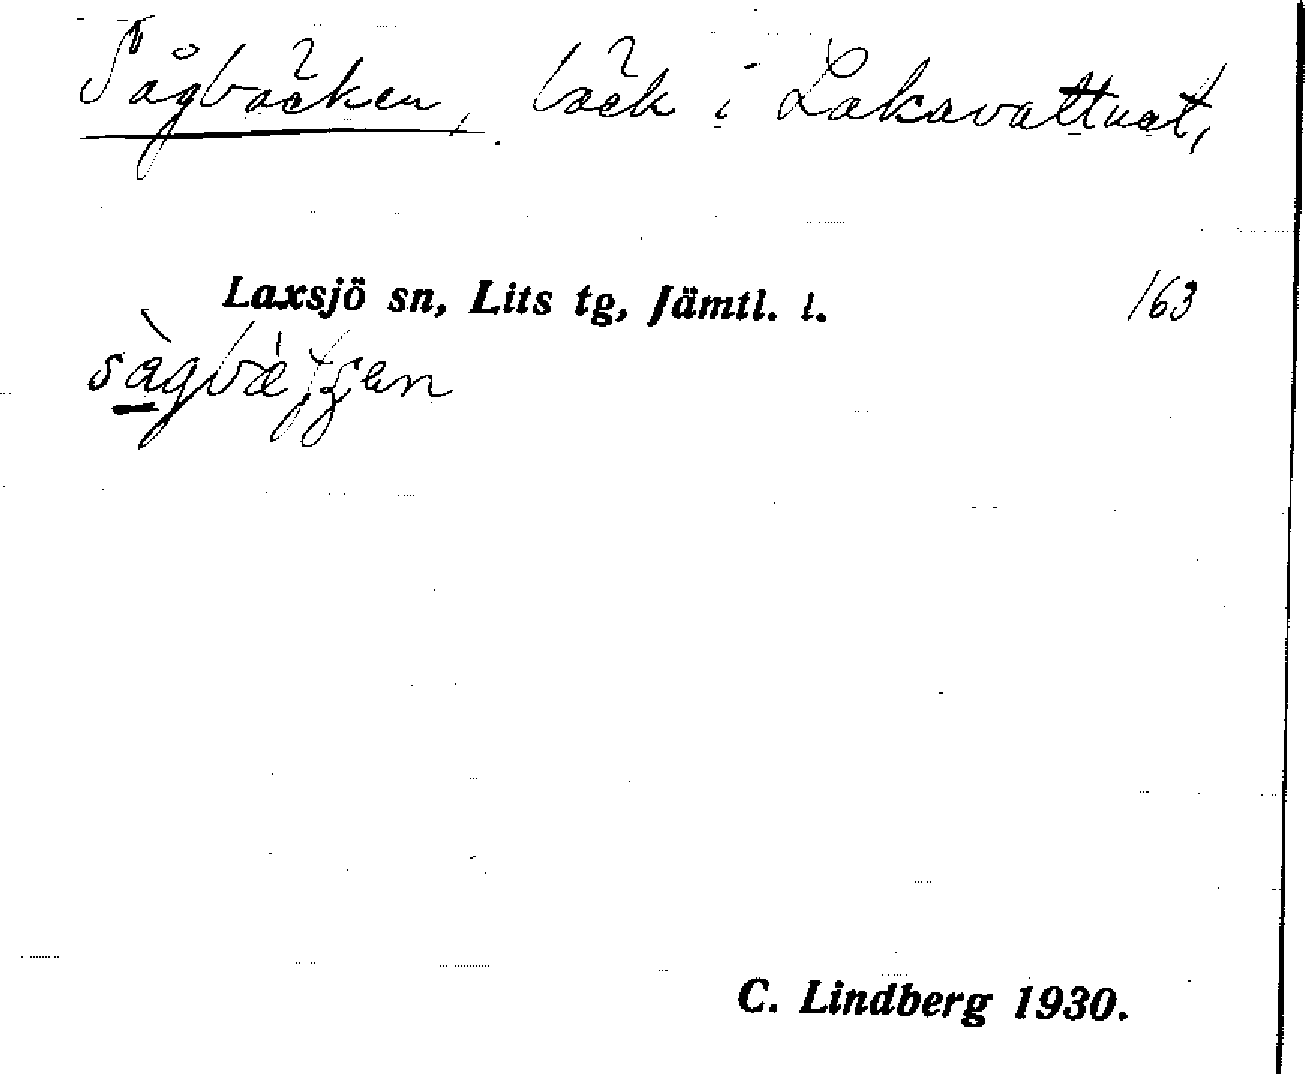 Sågbäcken, bäck i Laksavattnet,
Laxsjö sn, Lits tg, Jämtl. l.
163
C. Lindberg 1930.